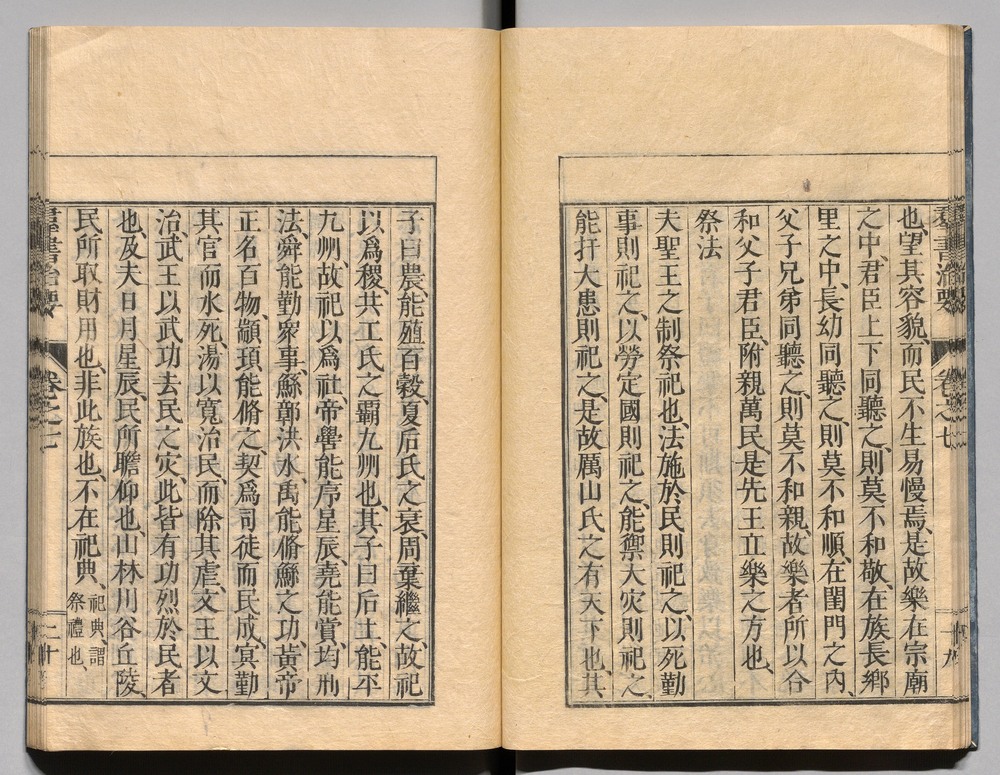 也、望其容貌、而民不生易慢焉、是故樂在宗廟
之中、君臣上下同聽之、則莫不和敬、在族長鄉
里之中、長幼同聽之、則莫不和順、在閨門之内、
父子兄弟同聽之、則莫不和親、故樂者所以合
和父子君臣、附親萬民、是先王立樂之方也、
祭法
夫聖王之制祭祀也、法施於民則祀之、以死勤
事則祀之、以勞定國則祀之、能禦大灾則祀之、
能扞大患則祀之、是故厲山氏之有天下也、其
子曰農、能殖百穀、夏后氏之衰、周棄繼之、故祀
以爲稷、共工氏之霸九州也、其子曰后土、能平
九州、故祀以爲社、帝嚳能序星辰、堯能賞、均刑
法、舜能勤衆事、鯀鄣洪水、禹能脩鯀之功、黃帝
正名百物、顓頊能脩之、契爲司徒而民成、冥勤
其官而水死、湯以寬治民、而除其虐、文王以文
治、武王以武功去民之灾、此皆有功烈於民者
也、及夫日月星辰、民所瞻仰也、山林川谷丘陵、
民所取財用也、非此族也、不在祀典、祀典、謂
祭禮也
群書治要 卷之七 二十